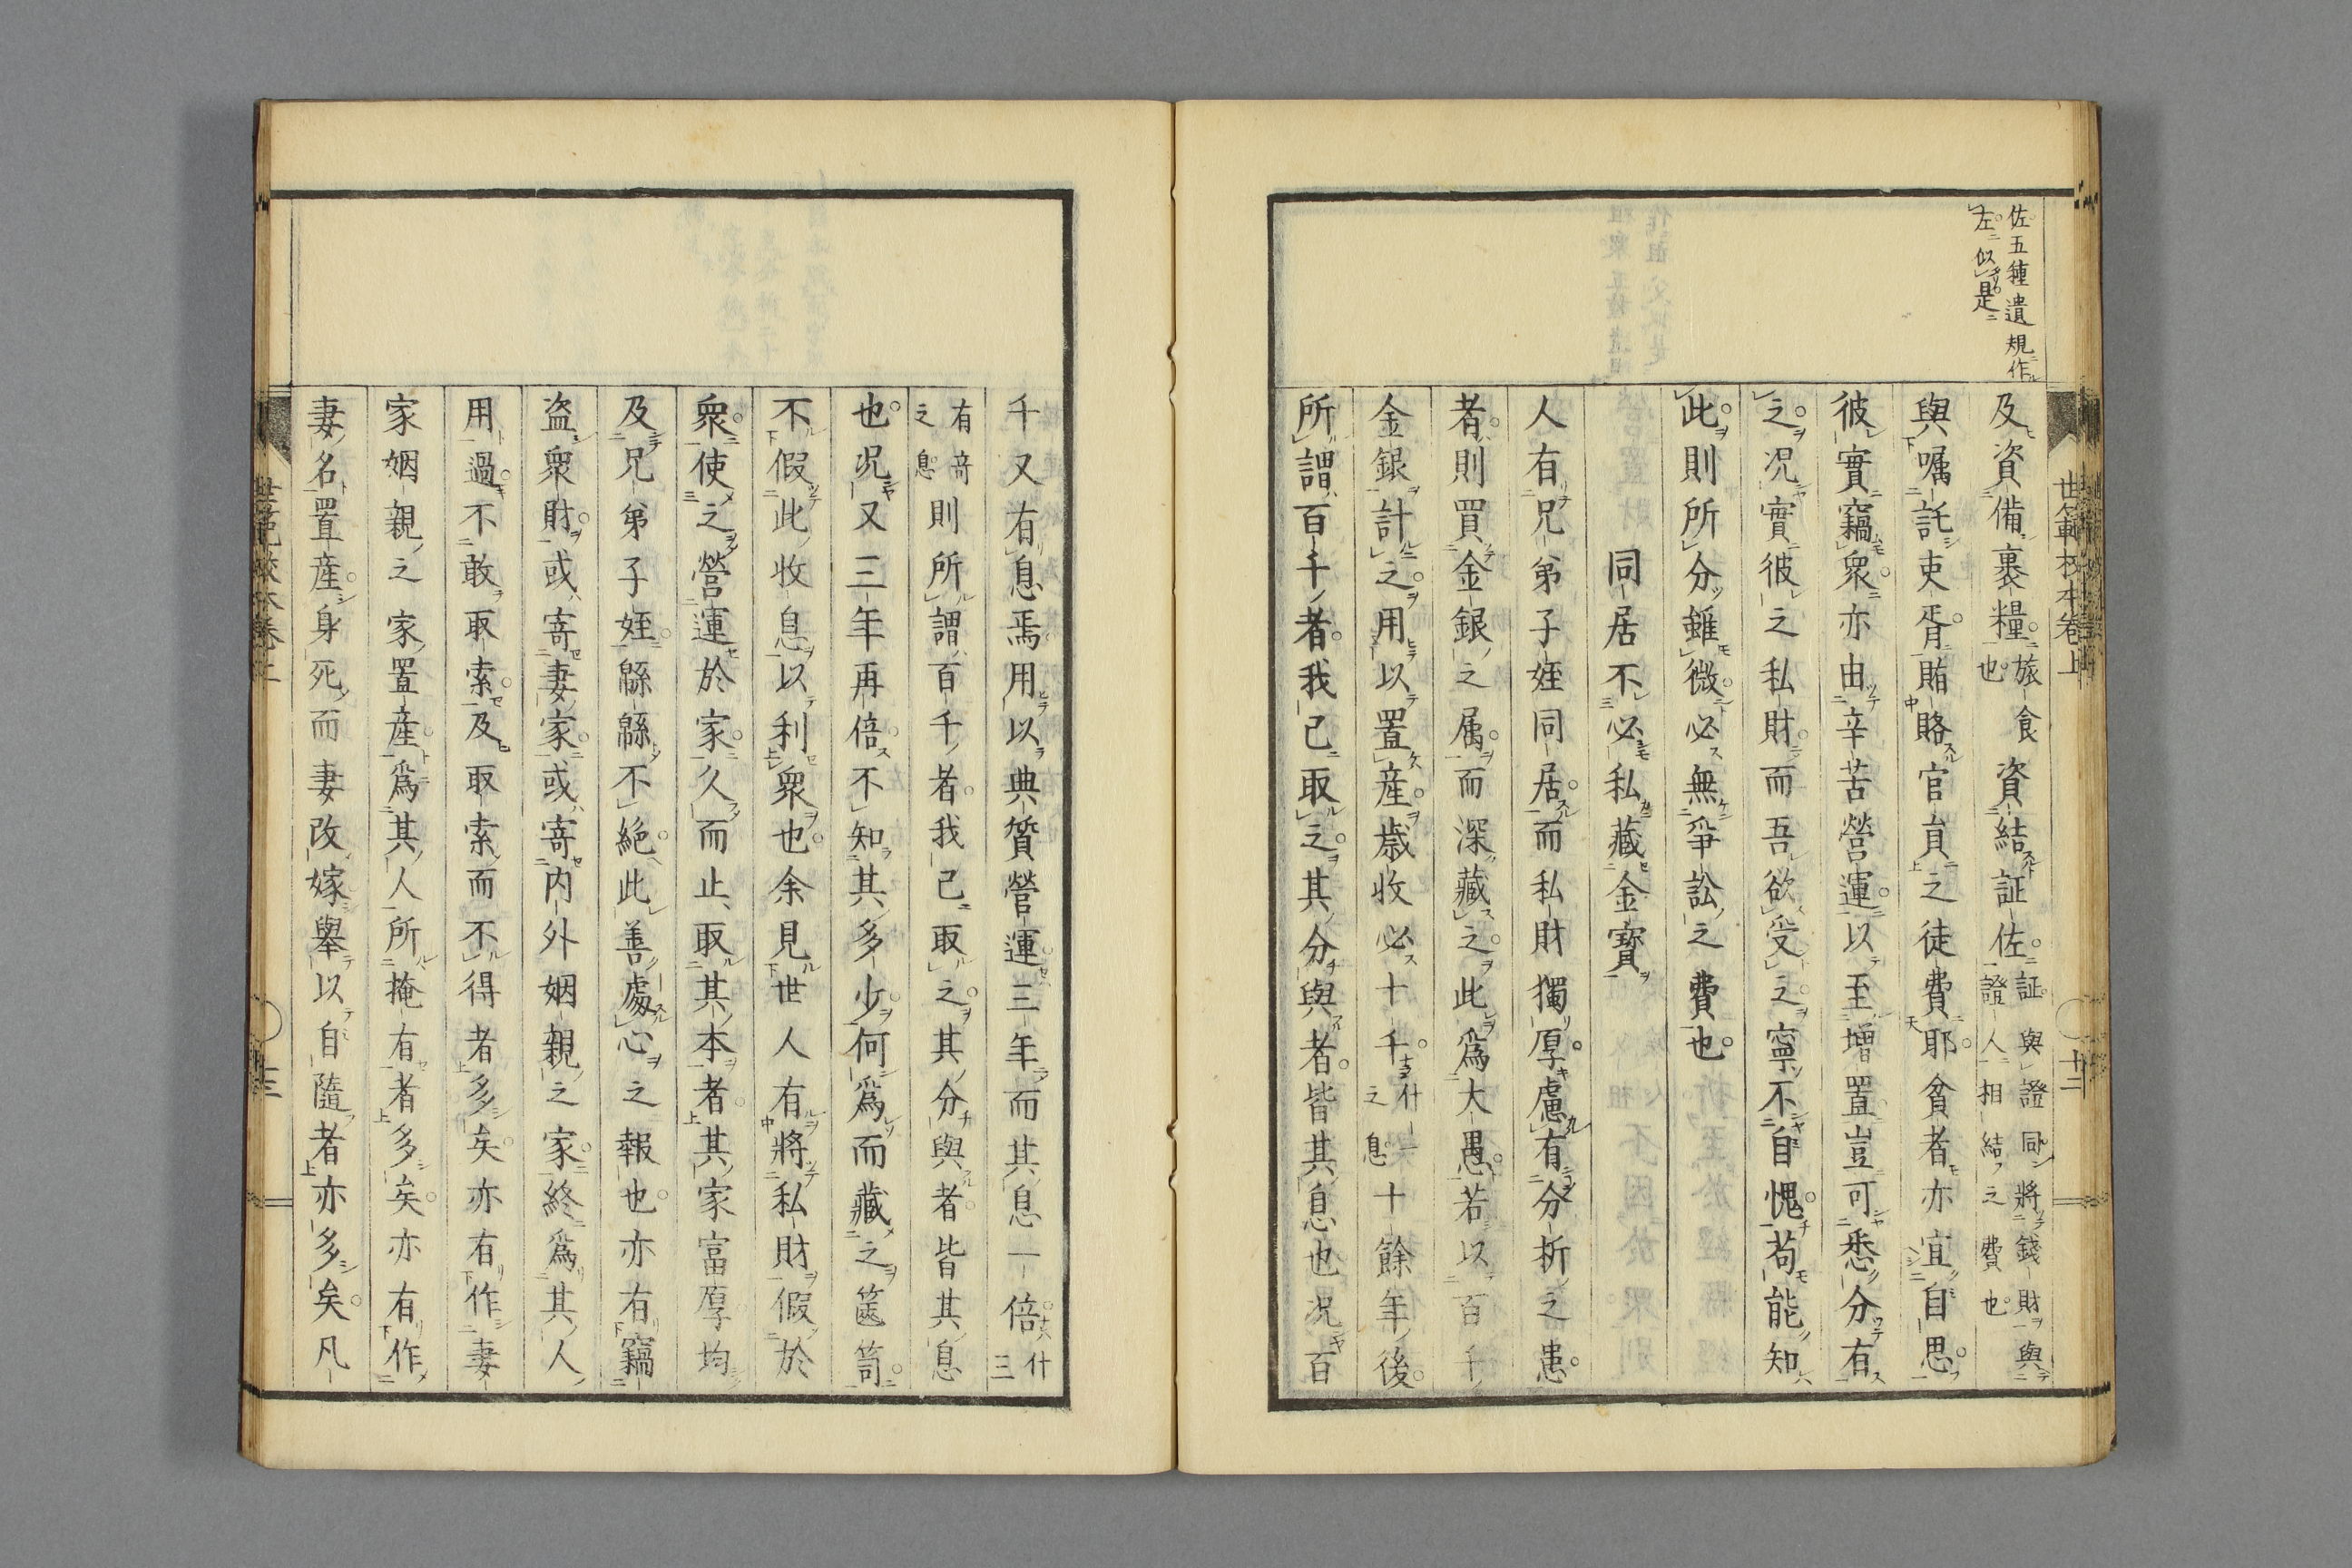 佐五種遺規作
左似是
世範校本卷上
十二
及資備裹糧旅食也資結証佐証與證同將錢財與證人相結之費也
與嘱託吏胥賂賂官員之徒費耶貧者亦宜自思
彼實竊衆亦由辛苦營運以至增置豈可悉分有
之况實彼之私財而吾欲受之寧不自愧苟能知
此則所分雖微必無爭訟之費也
同居不必私藏金寶
人有兄弟子姪同居而私財獨厚慮有分析之患
者則買金銀之属而深藏之此爲大愚若以百千
金銀計之用以置產歲收必十千什一之息十餘年後
所謂百千者我已取之其分與者皆其息也况百
千又有息焉用以典質營運三年而其息一倍什三
有奇之息則所謂百千者我已取之其分與者皆其息
也况又三年再倍不知其多少何爲而藏之篋笥
不假此收息以利衆也余見世人有將私財假於
衆使之營運於家久而止取其本者其家富厚均
及兄弟子姪緜緜不絶此善處心之報也亦有竊
盗衆財或寄妻家或寄内外姻親之家終爲其人
用過不敢取索及取索而不得者多矣亦有作妻
家姻親之家置產爲其人所掩有者多矣亦有作
妻名置産身死而妻改嫁舉以自隨者亦多矣凡